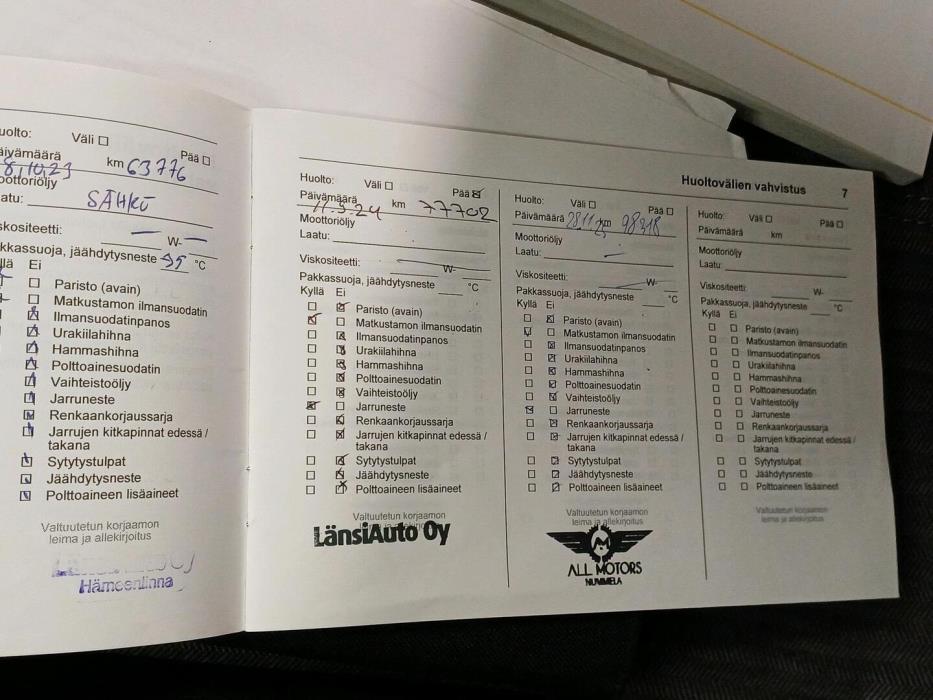 uolto: Väli ☐ Pää ☐
äivämäärä km 63776
8.10.23
oottoriöljy
aatu: SÄHKÖ
skositeetti: — W- —
kkassuoja, jäähdytysneste -35 °C
llä Ei
Paristo (avain)
Matkustamon ilmansuodatin
Ilmansuodatinpanos
Urakiilahihna
Hammashihna
Polttoainesuodatin
Vaihteistoöljy
Jarruneste
Renkaankorjaussarja
Jarrujen kitkapinnat edessä /
takana
Sytytystulpat
Jäähdytysneste
Polttoaineen lisäaineet
Valtuutetun korjaamon
leima ja allekirjoitus
Hämeenlinna
Huoltovälien vahvistus 7
Huolto: Väli ☐ Pää ☒
Päivämäärä km 77702
Moottoriöljy
Laatu:
Viskositeetti: W-
Pakkassuoja, jäähdytysneste °C
Kyllä Ei
Paristo (avain)
Matkustamon ilmansuodatin
Ilmansuodatinpanos
Urakiilahihna
Hammashihna
Polttoainesuodatin
Vaihteistoöljy
Jarruneste
Renkaankorjaussarja
Jarrujen kitkapinnat edessä /
takana
Sytytystulpat
Jäähdytysneste
Polttoaineen lisäaineet
Valtuutetun korjaamon
leima ja allekirjoitus
LänsiAuto Oy
Huolto: Väli ☐ Pää ☐
Päivämäärä 28.11.25 km 98318
Moottoriöljy
Laatu: —
Viskositeetti: W-
Pakkassuoja, jäähdytysneste °C
Kyllä Ei
Paristo (avain)
Matkustamon ilmansuodatin
Ilmansuodatinpanos
Urakiilahihna
Hammashihna
Polttoainesuodatin
Vaihteistoöljy
Jarruneste
Renkaankorjaussarja
Jarrujen kitkapinnat edessä /
takana
Sytytystulpat
Jäähdytysneste
Polttoaineen lisäaineet
Valtuutetun korjaamon
leima ja allekirjoitus
ALL MOTORS
NUMMELA
Huolto: Väli ☐ Pää ☐
Päivämäärä km
Moottoriöljy
Laatu:
Viskositeetti: W-
Pakkassuoja, jäähdytysneste °C
Kyllä Ei
Paristo (avain)
Matkustamon ilmansuodatin
Ilmansuodatinpanos
Urakiilahihna
Hammashihna
Polttoainesuodatin
Vaihteistoöljy
Jarruneste
Renkaankorjaussarja
Jarrujen kitkapinnat edessä /
takana
Sytytystulpat
Jäähdytysneste
Polttoaineen lisäaineet
Valtuutetun korjaamon
leima ja allekirjoitus